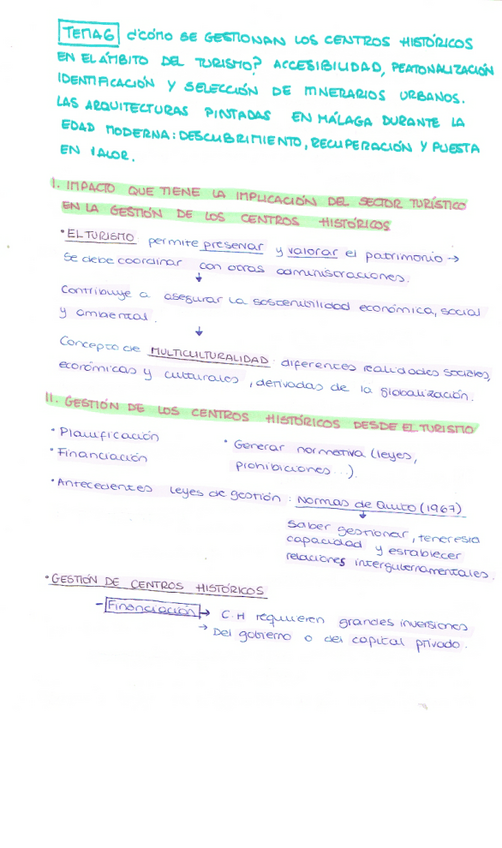 TEMA 6 ¿CÓMO SE GESTIONAN LOS CENTROS HISTÓRICOS
EN EL ÁMBITO DEL TURISMO? ACCESIBILIDAD, PEATONALIZACIÓN
IDENTIFICACIÓN Y SELECCIÓN DE ITINERARIOS URBANOS.
LAS ARQUITECTURAS PINTADAS EN MÁLAGA DURANTE LA
EDAD MODERNA: DESCUBRIMIENTO, RECUPERACIÓN Y PUESTA
EN VALOR.
I. IMPACTO QUE TIENE LA IMPLICACIÓN DEL SECTOR TURÍSTICO
EN LA GESTIÓN DE LOS CENTROS HISTÓRICOS
• EL TURISMO permite preservar y valorar el patrimonio →
Se debe coordinar con otras administraciones.
↓
Contribuye a asegurar la sostenibilidad económica, social
y ambiental.
↓
Concepto de MULTICULTURALIDAD: diferentes realidades sociales,
económicas y culturales, derivadas de la globalización.
II. GESTIÓN DE LOS CENTROS HISTÓRICOS DESDE EL TURISMO
• Planificación
• Financiación
• Generar normativa (leyes,
prohibiciones...).
• Antecedentes leyes de gestión: Normas de Quito (1967)
↓
Saber gestionar, tener esa
capacidad y establecer
relaciones intergubernamentales.
• GESTIÓN DE CENTROS HISTÓRICOS
- Financiación → C.H requieren grandes inversiones
→ Del gobierno o del capital privado.